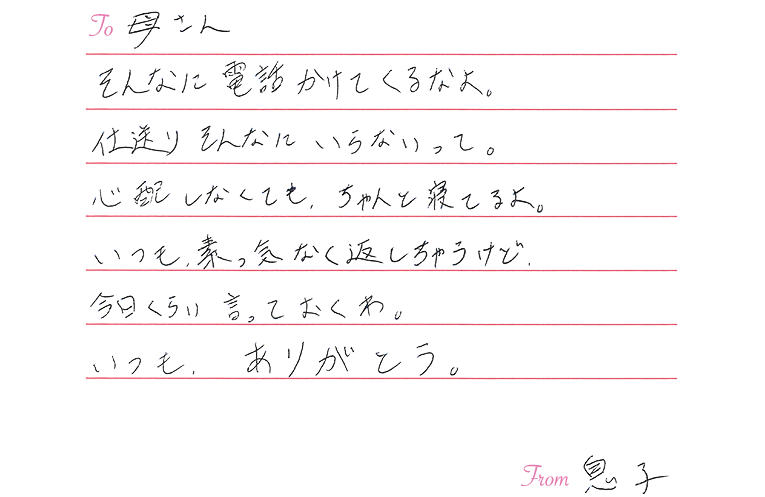 To 母さん
そんなに電話かけてくるなよ。
仕送りそんなにいらないって。
心配しなくても、ちゃんと寝てるよ。
いつも、素っ気なく返しちゃうけど、
今日くらい言っておくわ。
いつも、ありがとう。
From 息子